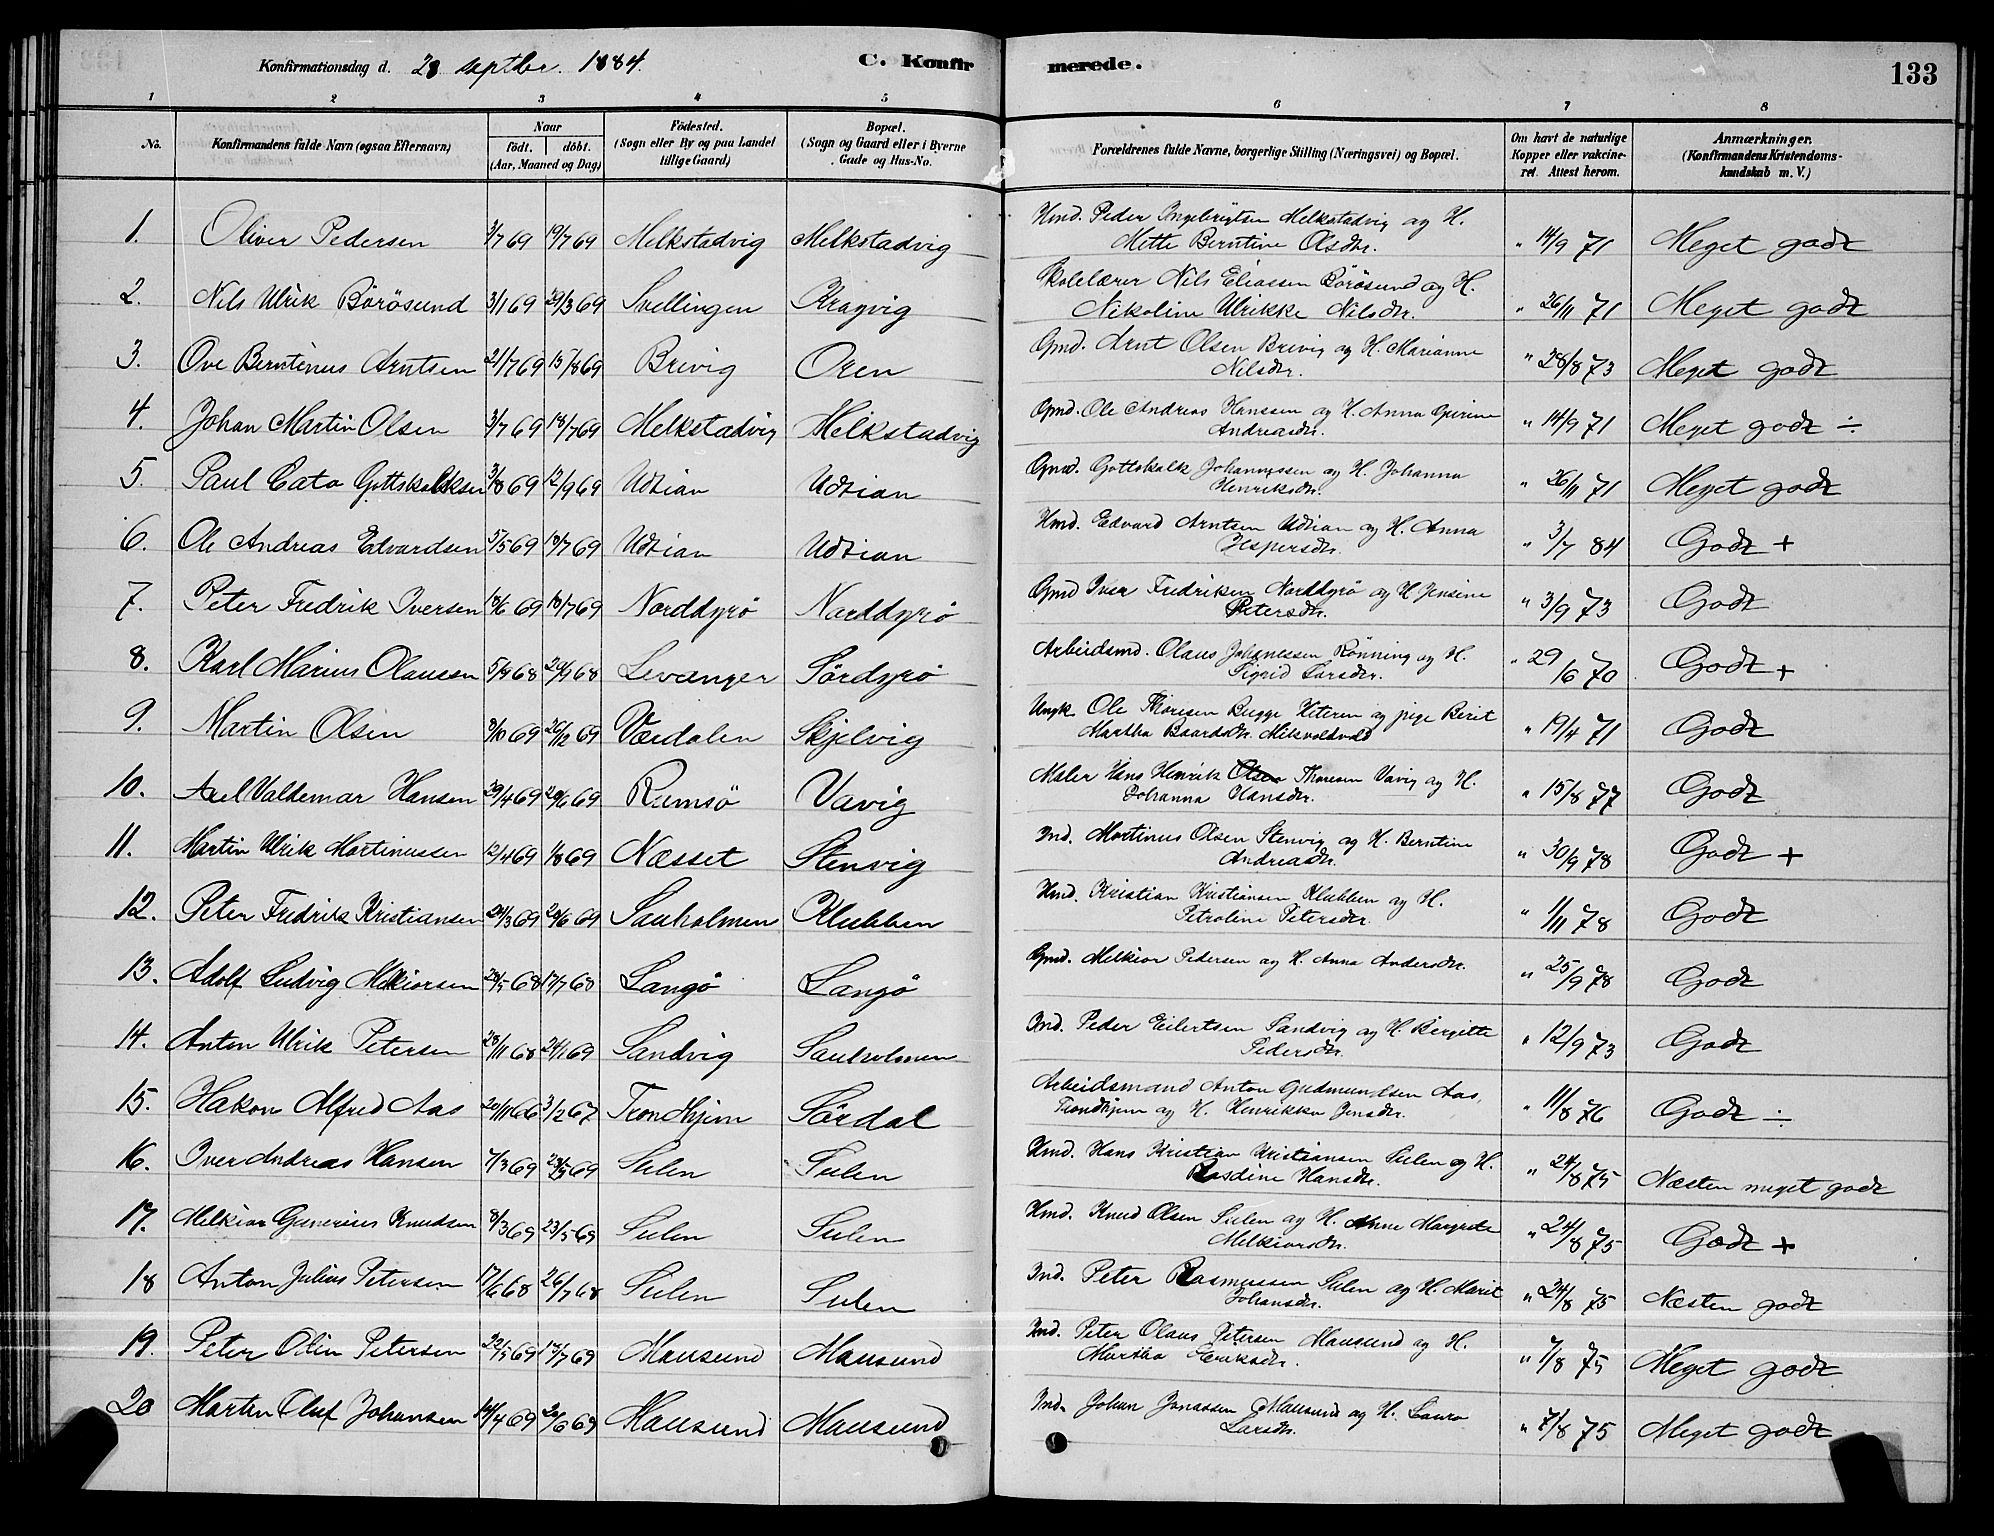 Konfirmationsdag d. 28 septbr. 1884. C. Konfirmerede. 133
1 2 3 4 5 6 7 8
No. Konfirmandens fulde Navn (ogsaa Efternavn) Naar födt. döbt. (Aar, Maaned og Dag) Födested. (Sogn eller By og paa Landet tillige Gaard) Bopæl. (Sogn og Gaard eller i Byerne Gade og Hus-No. Forældrenes fulde Navne, borgerlige Stilling (Næringsvei) og Bopæl. Om havt de naturlige Kopper eller vakcineret. Attest herom. Anmærkninger. (Konfirmandens Kristendomskundskab m. V.)
1. Oliver Pedersen 3/7 69 19/7 69 Melkstadvig Melkstadvig Hmd. Peder Ingebrigtsen Melkstadvig og H. Mette Berntine Olsdtr. " 14/9 71 Meget godt
2. Nils Ulrik Börösund 3/1 69 29/3 69 Smellingen Kragvig Skolelærer Nils Eliassen Börösund og H. Nikoline Ulrikke Nilsdtr. " 26/11 71 Meget godt
3. Ove Berntinus Arntsen 21/7 69 15/8 69 Brivig Oren Gmd. Arnt Olsen Brivig og H. Marianne Nilsdtr. " 28/8 73 Meget godt
4. Johan Martin Olsen 3/7 69 18/7 69 Melkstadvig Melkstadvig Gmd. Ole Andreas Hanssen og H. Anna Gurine Andreasdtr. " 14/9 71 Meget godt ÷
5. Paul Cato Gottskalksen 3/8 69 12/9 69 Udtian Udtian Gmd. Gottskalk Johannessen og H. Johanna Henriksdtr. " 26/11 71 Meget godt
6. Ole Andreas Edvardsen 5/5 69 18/7 69 Udtian Udtian Hmd. Edvard Arntsen Udtian og H. Anna Jespersdtr. " 3/7 84 Godt +
7. Peter Fredrik Iversen 18/6 69 18/7 69 Norddyrö Norddyrö Gmd Iver Fredriksen Norddyrö og H. Jensine Petersdtr. " 3/9 73 Godt
8. Karl Marius Olaussen 5/9 68 20/9 68 Levanger Sördyrö Arbeidsmd. Olaus Johanessen Rönning og H. Sigrid Larsdtr. " 29/6 70 Godt +
9. Martin Olsen 8/10 69 26/12 69 Værdalen Skjelvig Ungk Ole Thoresen Bugge Heteren og pige Berit Martha Baardsdtr. " 19/4 71 Godt
10. Axel Valdemar Hansen 29/4 69 20/6 69 Ramsö Vavig Maler Hans Henrik Thoresen Vavig og H. Johanna Hansdtr. " 15/8 77 Godt
11. Martin Ulrik Martinussen 12/4 69 1/8 69 Næsset Stenvig Ind. Martinus Olsen Stenvig og H. Berntine Andreasdtr. " 30/9 78 Godt +
12. Peter Fredrik Kristiansen 24/3 69 20/6 69 Sauholmen Klubben Hmd. Kristian Kristiansen Klubben og H. Petroline Petersdtr. " 1/11 78 Godt
13. Adolf Ludvig Melkiorsen 28/5 68 12/7 68 Langö Langö Gmd. Melkior Pedersen og H. Anna Andersdtr. " 25/9 78 Godt
14. Anton Ulrik Petersen 28/11 68 24/1 69 Sandvig Sauholmen Ind. Peder Eilertsen Sandvig og H. Bergitte Pedersdtr. " 12/9 73 Godt
15. Hakon Alfred Aas 20/11 66 3/2 67 Trondhjem Sördal Arbeidsmand Anton Gudmundsen Aas, Trondhjem og H. Henrikke Jensdtr. " 11/8 76 Godt ÷
16. Iver Andreas Hansen 7/3 69 23/5 69 Sulen Sulen Hmd. Hans Kristian Kristiansen Sulen og H. Rasdine Hansdtr. " 24/8 75 Næsten meget godt
17. Melkior Gunerius Knudsen 8/3 69 23/5 69 Sulen Sulen Hmd. Knud Olsen Sulen og H. Anne Margrete Melkiorsdtr. " 24/8 75 Godt +
18 Anton Julius Petersen 17/6 68 26/7 68 Sulen Sulen Ind. Peter Rasmussen Sulen og H. Marit Johansdtr. " 24/8 75 Næsten godt
19. Peter Odin Petersen 22/5 69 17/7 69 Mausund Mausund Ind. Peter Olaus Petersen Mausund og H. Martha Eriksdtr. " 7/8 75 Meget godt
20 Morten Oluf Johansen 14/4 69 20/6 69 Mausund Mausund Ind. Johan Jonassen Mausund og H. Laura Larsdtr. " 7/8 75 Meget godt